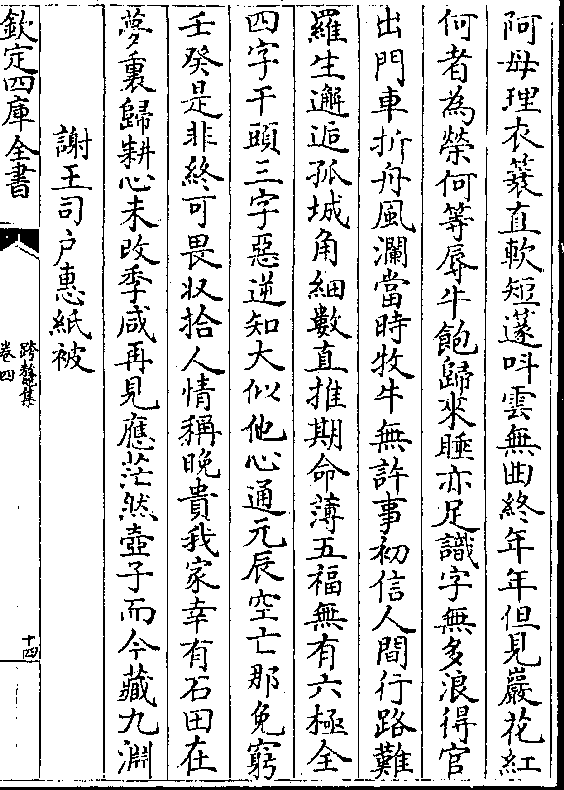 阿母理衣蓑直軟短蓫呌雲無曲終年年但見巖花紅
何者為榮何等辱牛飽歸來睡亦足識字無多浪得官
出門車折舟風瀾當時牧牛無許事初信人間行路難
羅生邂逅孤城角細數直推期命薄五福無有六極全
四字干頭三字惡逆知大似他心通元辰空亡那免窮
壬癸是非終可畏収拾人情稱晚貴我家幸有石田在
夢裏歸耕心未改季咸再見應茫然壺子而今藏九淵
謝王司户惠紙被
欽定四庫全書
跨鼇集
卷四
十四